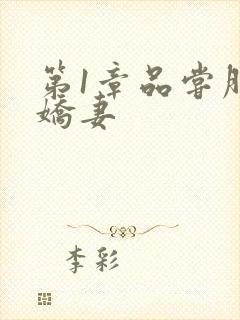 第1章品尝
娇妻
李彩